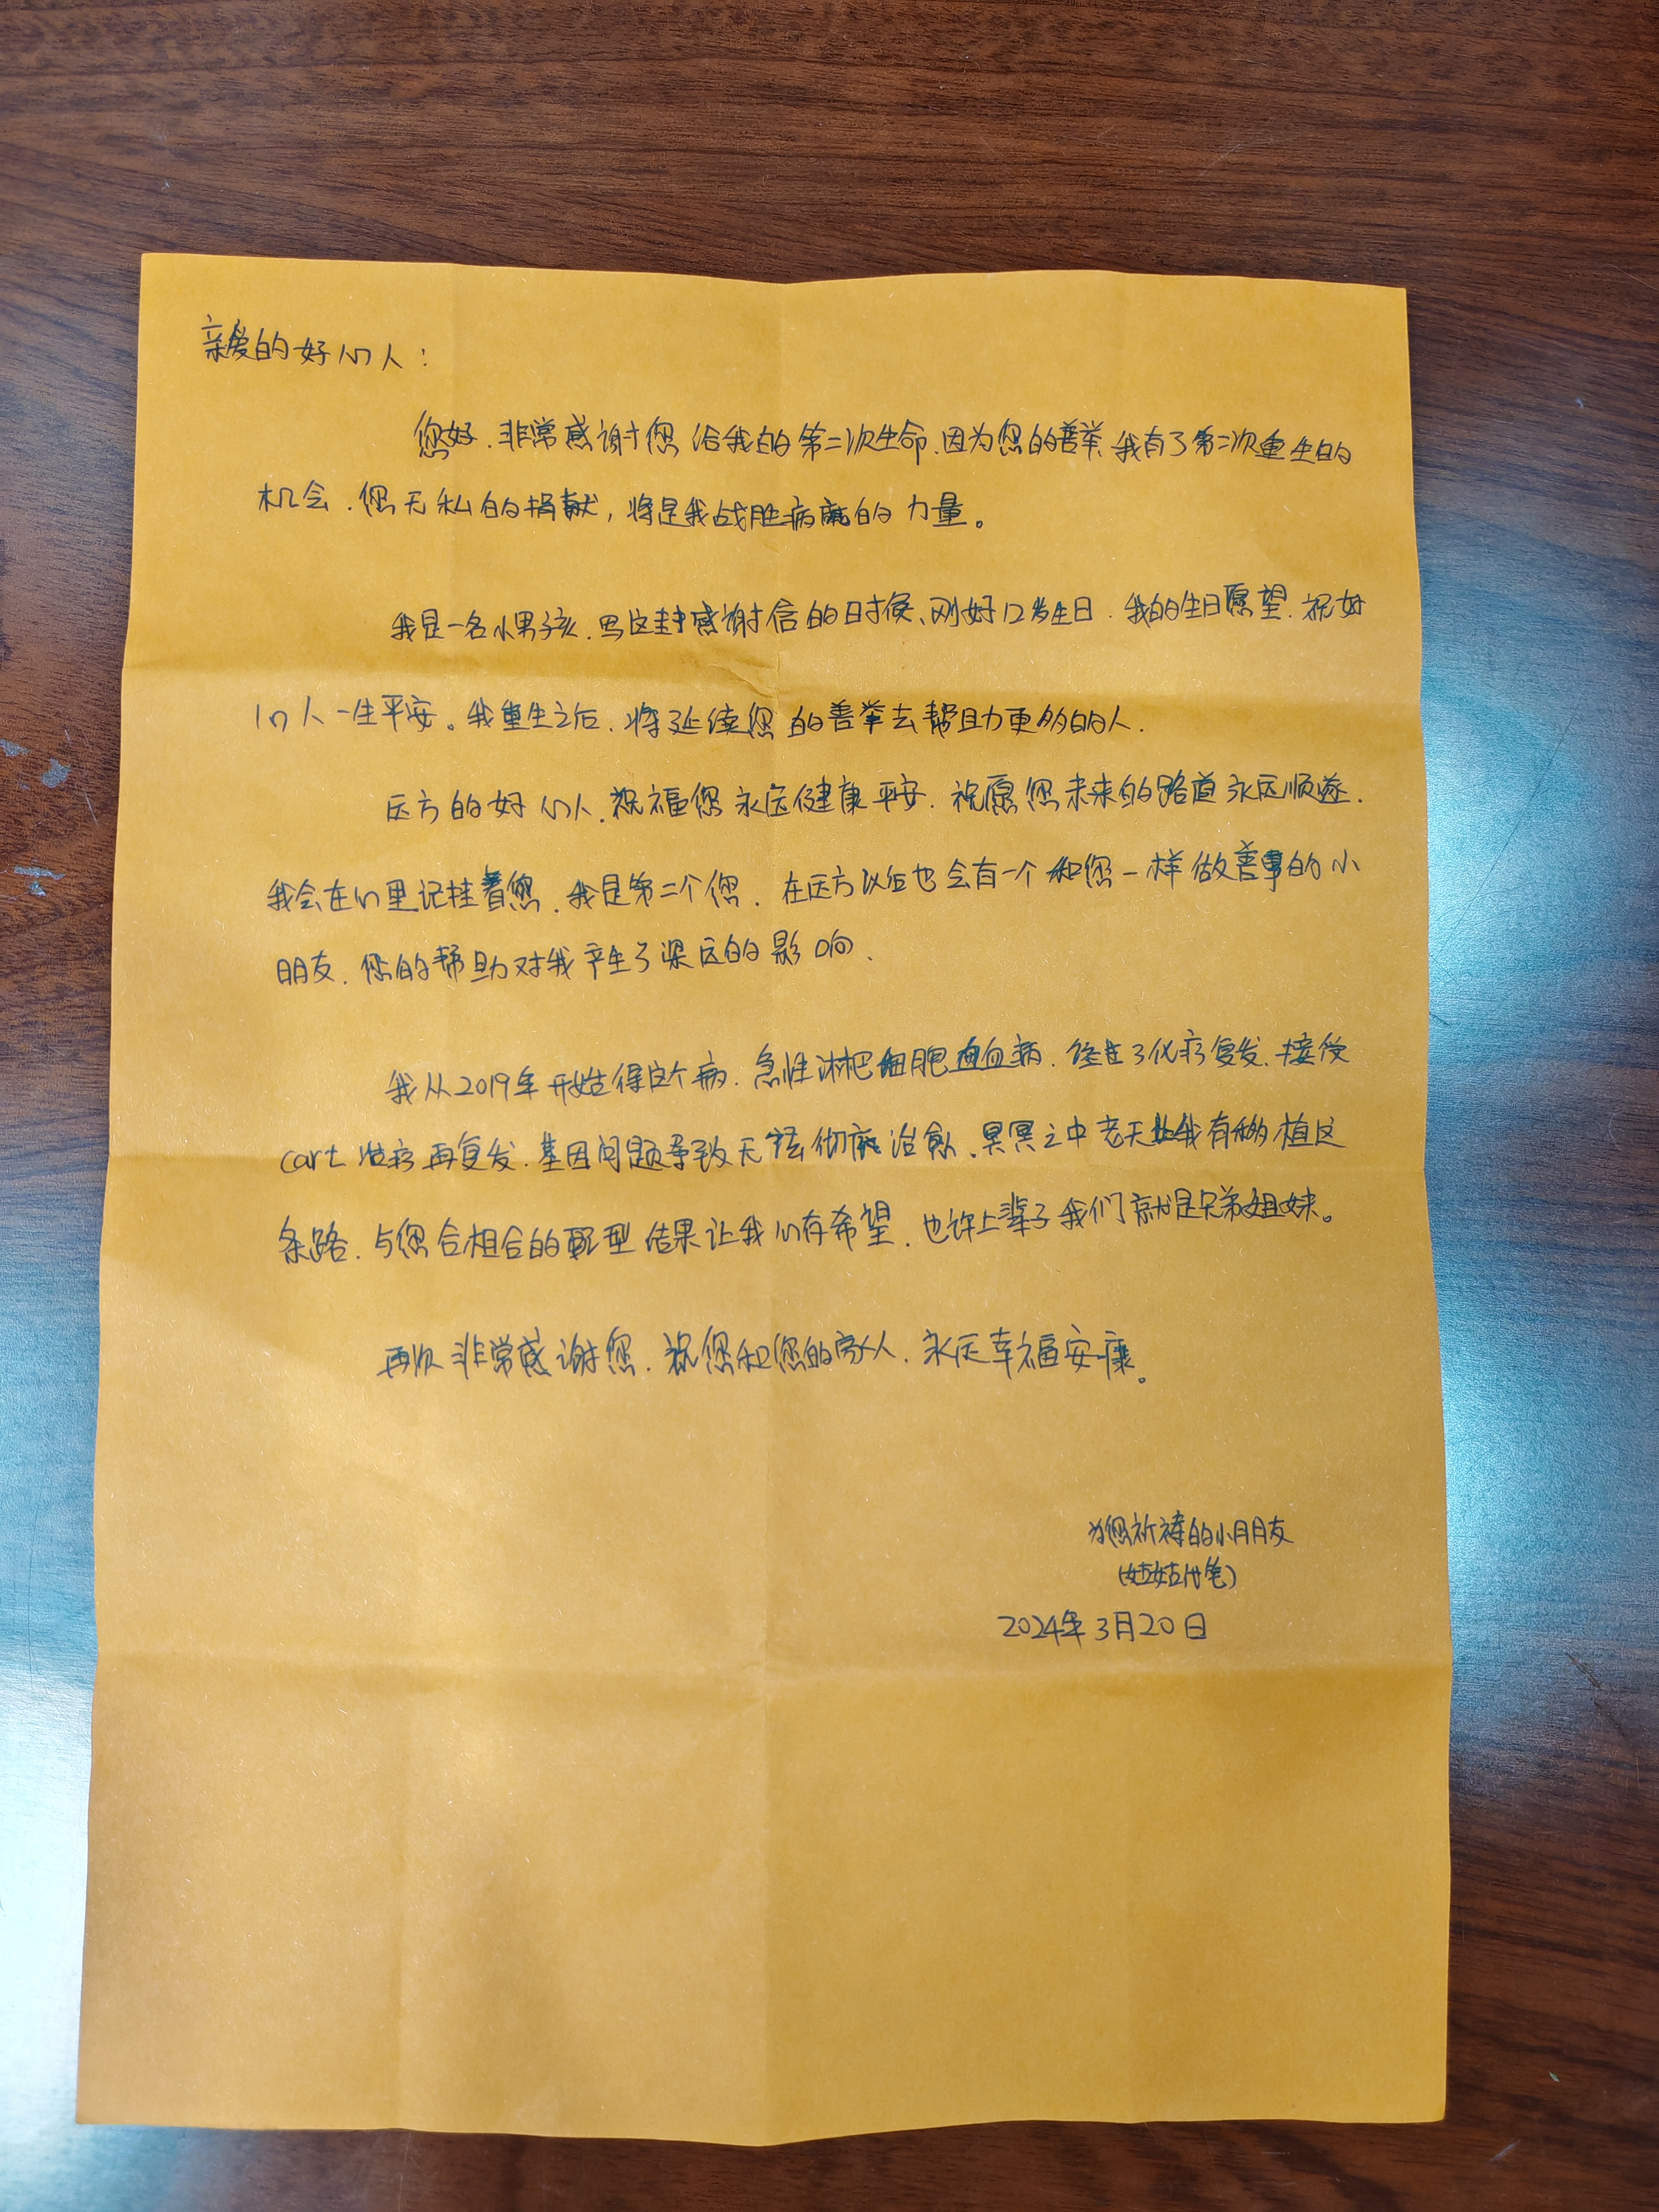 亲爱的好心人：
您好.非常感谢您给我的第二次生命.因为您的善举、我有了第二次重生的
机会.您无私的捐献，将是我战胜病魔的力量。
我是一名小男孩.写这封感谢信的时候、刚好12岁生日.我的生日愿望.祝好
心人一生平安。我重生之后.将延续您的善举去帮助更多的人.
远方的好心人.祝福您永远健康平安.祝愿您未来的路道永远顺遂.
我会在心里记挂着您.我是第二个您.在远方以后也会有一个和您一样做善事的小
朋友.您的帮助对我产生了深远的影响.
我从2019年开始得这个病.急性淋巴细胞白血病.经过了化疗复发.接受
cart治疗再复发.基因问题导致无法彻底治愈.冥冥之中老天让我有移植这
条路.与您合相合的配型结果让我心存希望.也许上辈子我们就是兄弟姐妹。
再次非常感谢您.祝您和您的家人.永远幸福安康。
为您祈祷的小朋友
(姑姑代笔)
2024年3月20日